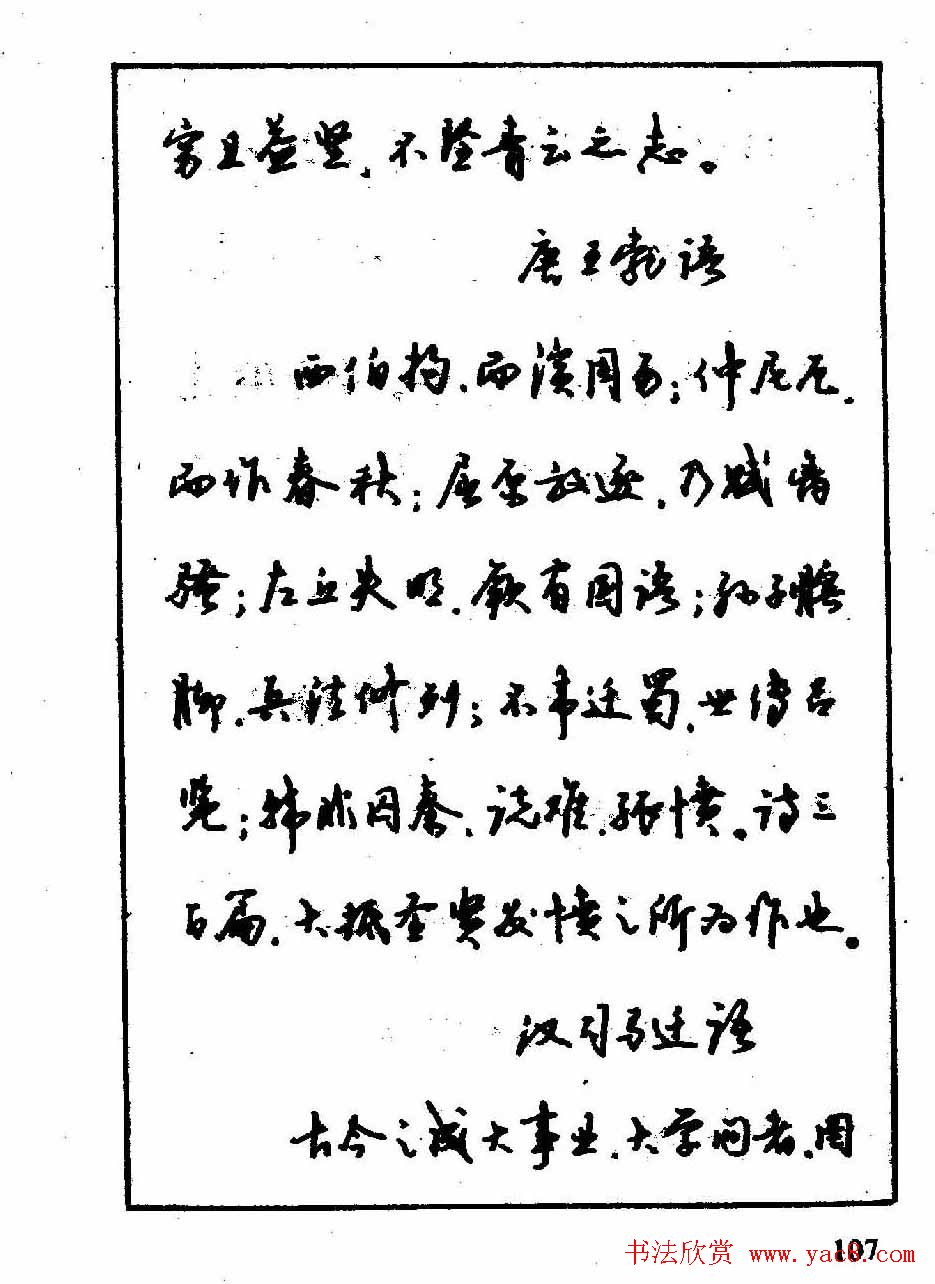 穷且益坚,不坠青云之志。
唐王勃语
西伯拘,而演周易;仲尼厄,
而作春秋;屈原放逐,乃赋离
骚;左丘失明,厥有国语;孙子膑
脚,兵法修列;不韦迁蜀,世传吕
览;韩非囚秦,说难,孤愤。诗三
百篇,大抵圣贤发愤之所为作也。
汉司马迁语
古今之成大事业,大学问者,周
107
书法欣赏 www.yac8.com